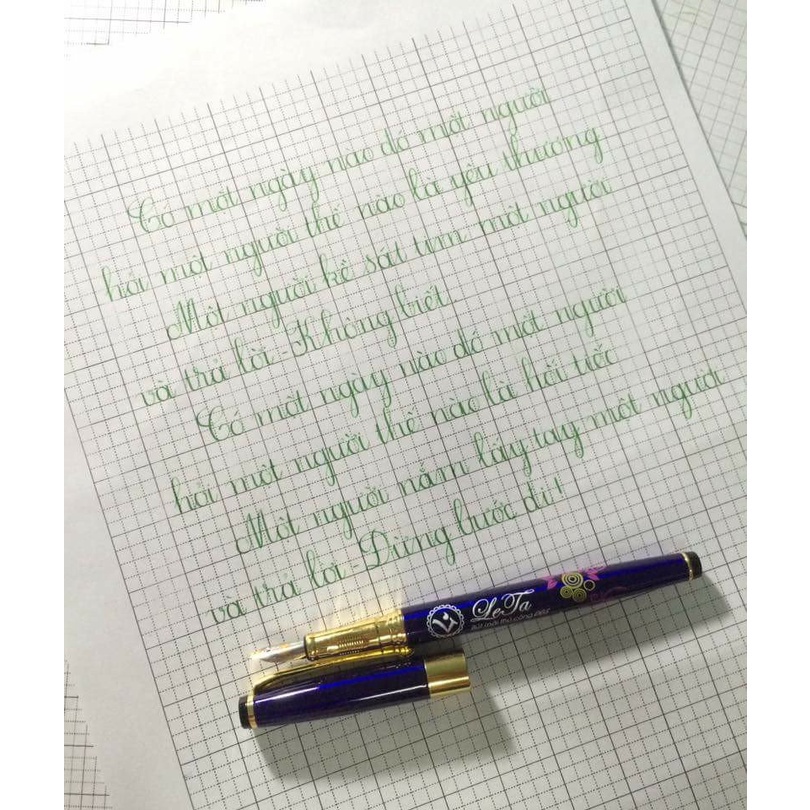 Có một ngày nào đó một người
hỏi một người thế nào là yêu thương
Một người kề sát tim một người
và trả lời - Không biết.
Có một ngày nào đó một người
hỏi một người thế nào là hối tiếc
Một người nắm lấy tay một người
và trả lời - Đừng bước đi!
LeTa